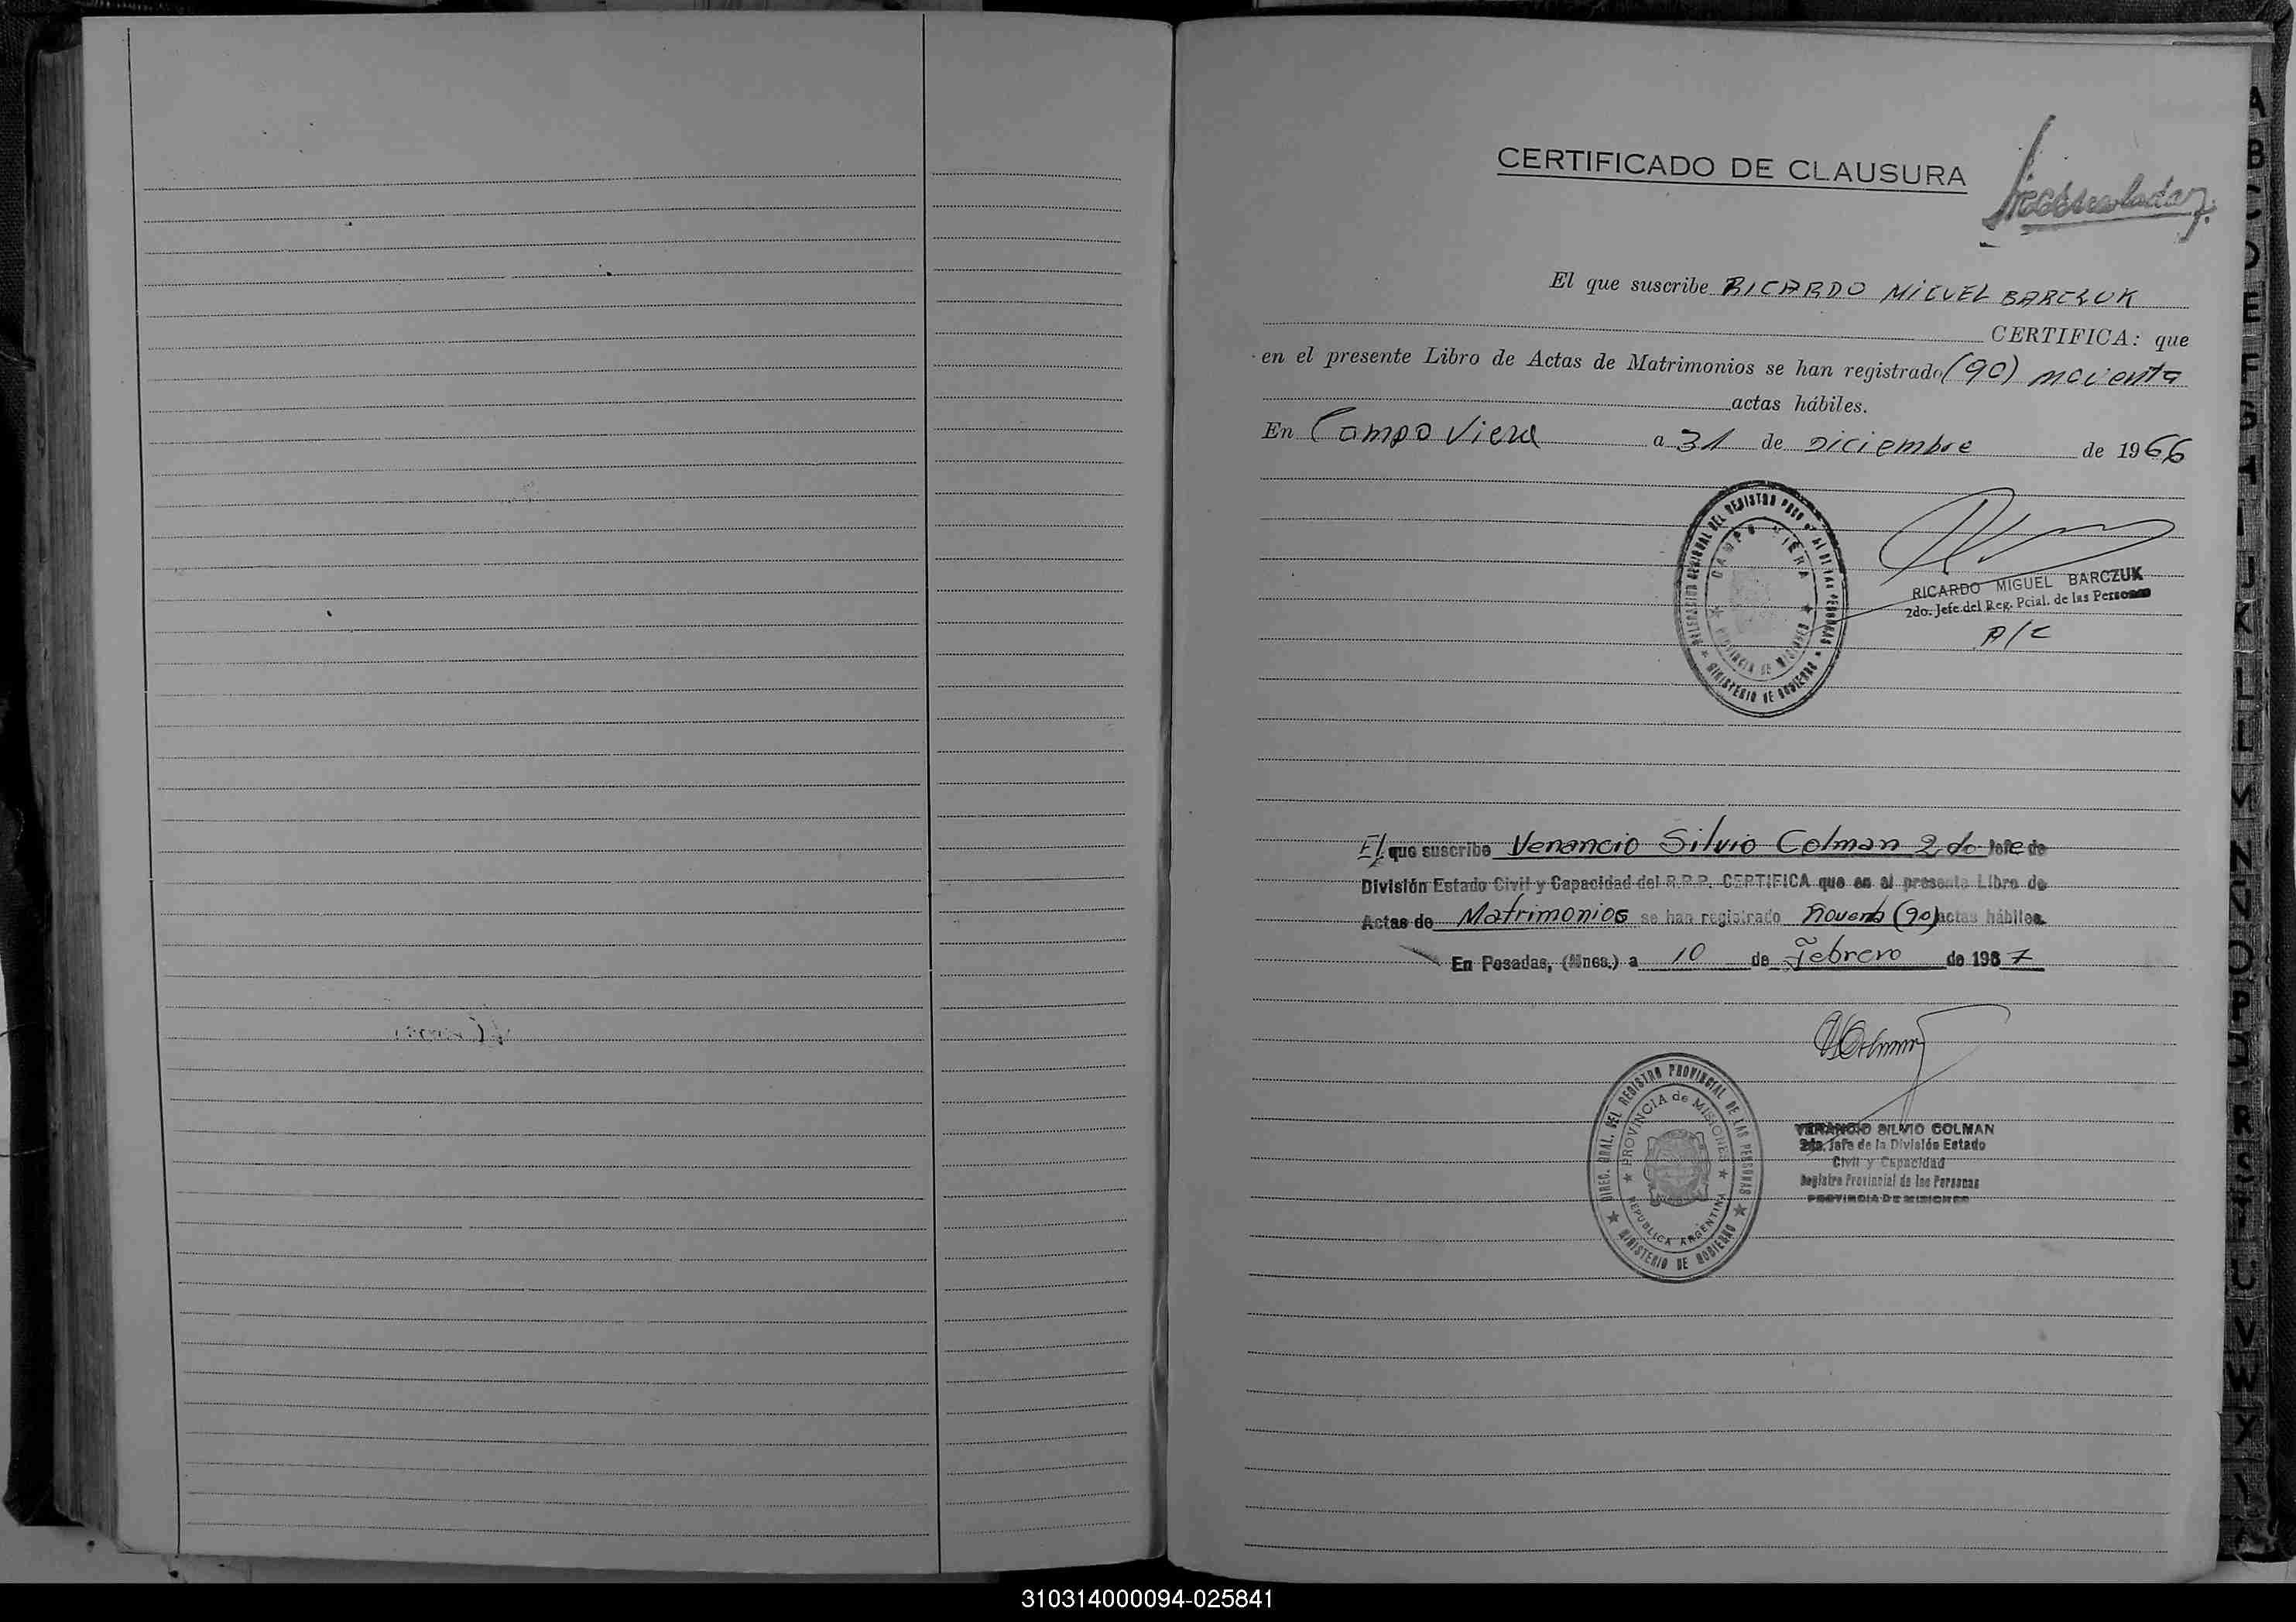 CERTIFICADO DE CLAUSURA
El que suscribe RICARDO MIGUEL BARCZUK
CERTIFICA: que
en el presente Libro de Actas de Matrimonios se han registrado (90) noventa
actas hábiles.
En Campo Viera a 31 de Diciembre de 1966
DELEGACION REGIONAL DEL REGISTRO DE LAS PERSONAS
CAMPO VIERA
PROVINCIA DE MISIONES
MINISTERIO DE GOBIERNO
RICARDO MIGUEL BARCZUK
2do. Jefe del Reg. Pcial. de las Personas
A/C
El que suscribe Venancio Silvio Colman 2do Jefe de
División Estado Civil y Capacidad del R.P.P. CERTIFICA que en el presente Libro de
Actas de Matrimonios se han registrado noventa (90) actas hábiles.
En Posadas, (Mnes.) a 10 de Febrero de 1967
VColman
DIREC. GRAL. DEL REGISTRO PROVINCIAL DE LAS PERSONAS
PROVINCIA de MISIONES
REPUBLICA ARGENTINA
MINISTERIO DE GOBIERNO
VENANCIO SILVIO COLMAN
2do. Jefe de la División Estado
Civil y Capacidad
Registro Provincial de las Personas
PROVINCIA DE MISIONES
A
B
C
D
E
F
G
H
I
J
K
L
M
N
O
P
Q
R
S
T
U
V
W
X
310314000094-025841